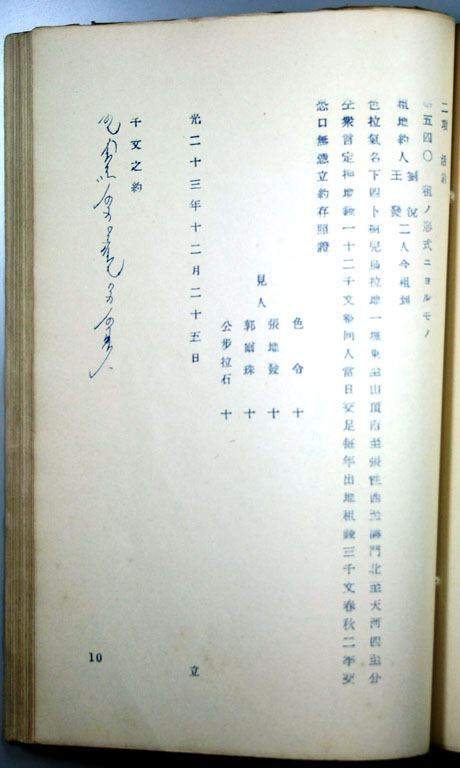 二項 活約
第五四〇 租ノ形式ニヨルモノ
租地約人 劉悅 王發 二人今租到
色拉氣名下四卜桐兒烏拉地一塊東至山頂南至張姓西至溝門北至天河四至分
全衆言定押地錢一十二千文整同人當日交足每年出地租錢三千文春秋二季交
恐口無憑立約存照證
色令 十
見人
張地發 十
郭爾珠 十
公步拉石 十
光二十三年十二月二十五日 立
千文之約
10